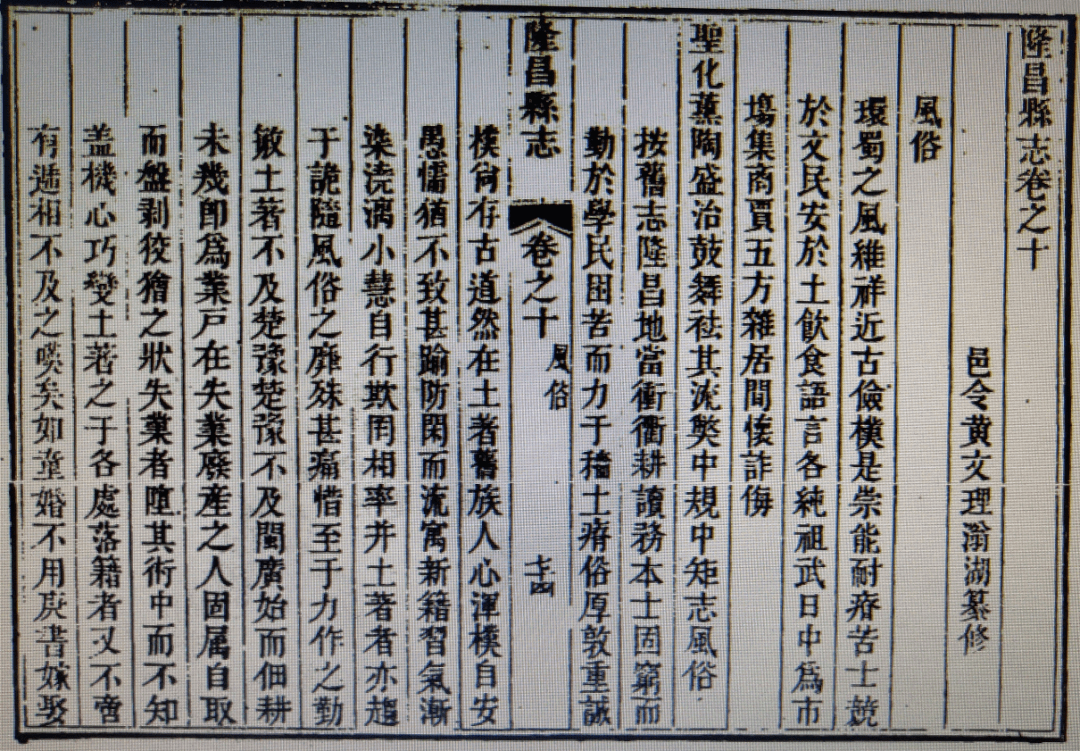 隆昌縣志卷之十
邑令黄文理瀚湖纂修
風俗
環蜀之風維祥近古儉樸是崇能耐瘠苦士競
於文民安於土飲食語言各純祖武日中爲市
塲集商賈五方雜居間懷詐侮
聖化薰陶盛治鼓舞祛其流獘中規中矩志風俗
按舊志隆昌地當衝衢耕讀務本士固窮而
勤於學民困苦而力于穡土瘠俗厚敦重誠
隆昌縣志
卷之十
風俗
十四
樸尙存古道然在土者舊族人心渾樸自安
愚懦猶不致甚踰防閑而流寓新籍習氣漸
染澆漓小慧自行欺罔相率并土著者亦趨
于詭隨風俗之靡殊甚痛惜至于力作之勤
敏土著不及楚豫楚豫不及閩廣始而佃耕
未幾卽爲業戶在失業廢產之人固属自取
而盤剥狡獪之狀失業者墮其術中而不知
盖機心巧變土著之于各處落籍者又不啻
有遞相不及之嘆矣如童婚不用庚書嫁娶